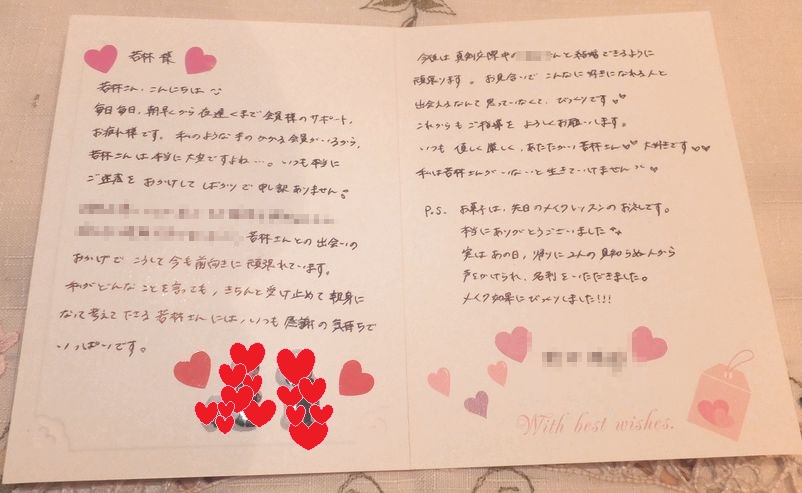 若林 様
若林さん、こんにちは
毎日毎日、朝早くから夜遅くまで会員様のサポート、
お疲れ様です。私のような手のかかる会員がいるから、
若林さんは本当に大変ですよね…。いつも本当に
ご迷惑をおかけしてばかりで申し訳ありません。
若林さんとの出会いの
おかげでこうして今も前向きに頑張れています。
私がどんなことを言っても、きちんと受け止めて親身に
なって考えて下さる若林さんには、いつも感謝の気持ちで
いっぱいです。
今後は真剣交際中の んと結婚できるように
頑張ります。お見合いでこんなに好きになれる人と
出会えるなんて思っていなくて、びっくりです
これからもご指導をよろしくお願いします。
いつも優しく厳しく、あたたかい若林さん 大好きです
私は若林さんがいないと生きていけません
P.S. お菓子は、先日のメイクレッスンのお礼です。
本当にありがとうございました
実はあの日、帰りに2人の見知らぬ人から
声をかけられ、名刺をいただきました。
メイク効果にびっくりしました!!!
With best wishes.